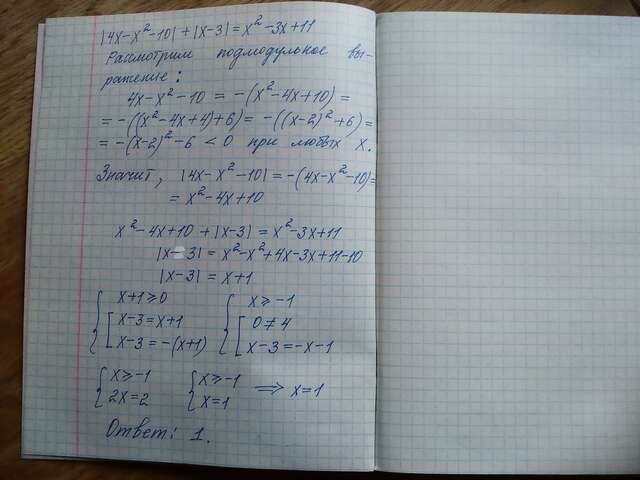 |4x-x²-10|+|x-3|=x²-3x+11
Рассмотрим подмодульное вы-
ражение:
4x-x²-10 = -(x²-4x+10) =
= -((x²-4x+4)+6) = -((x-2)²+6) =
= -(x-2)²-6 < 0 при любых x.
Значит, |4x-x²-10| = -(4x-x²-10) =
= x²-4x+10
x²-4x+10 + |x-3| = x²-3x+11
|x-3| = x²-x²+4x-3x+11-10
|x-3| = x+1
{ x+1≥0 { x≥-1
[ x-3=x+1 [ 0≠4
[ x-3=-(x+1) [ x-3=-x-1
{ x≥-1 { x≥-1 ⟹ x=1
{ 2x=2 { x=1
Ответ: 1.